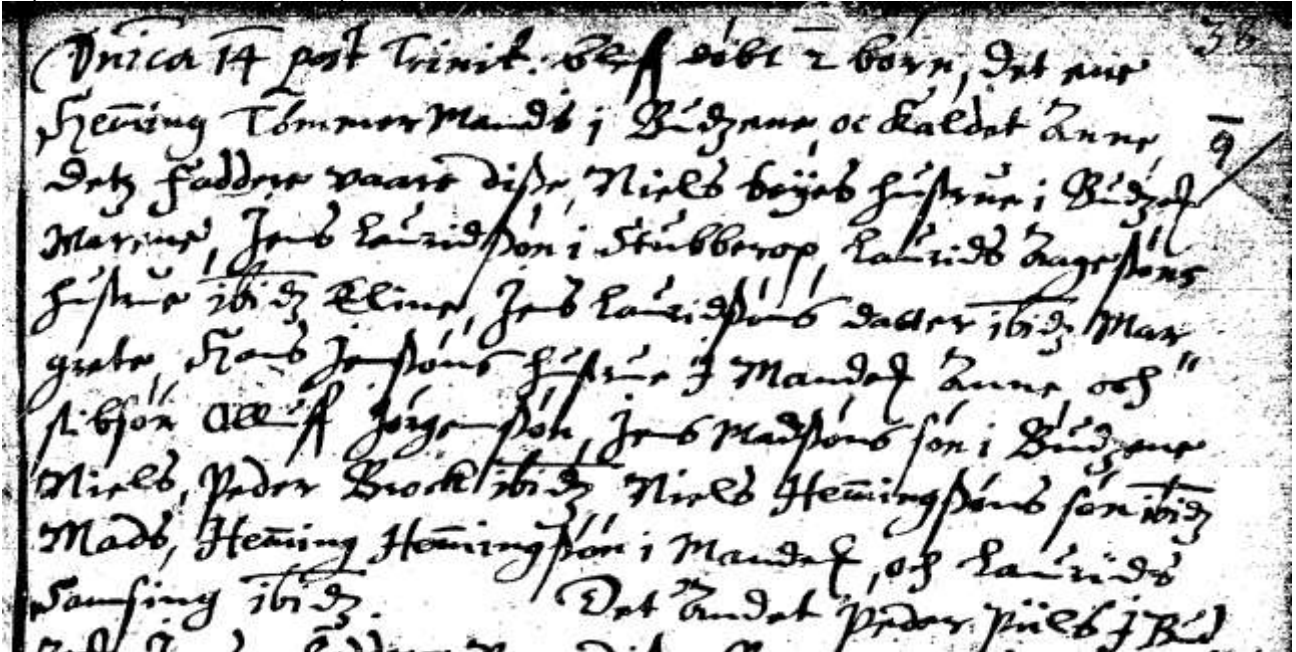 Dnica 14 post Trinit. bleff döbt 2 börn, det ene
Hem̄ing Tömmermands i Budzene, oc kaldet Anne,
detz Faddere vaare disse, Niels böyes hustrue i Budzen
Marene, Jens Lauridssön i Stubberop, Laurids Aagessöns
hustrue ibidz Eline, Jens Lauridssöns datter ibidz Mar
grete, Hans Jenssöns hustrue i Mandel Anne, och
stibsön Olluff Jörgenssön, Jens Madssöns sön i Budzene
Niels, Peder Brock ibidz, Niels Hem̄ingssöns sön ibidz
Mads, Hem̄ing Hem̄ingssön i Mandel, och Laurids
Samsing ibidz. Det Andet Peder Piils i Bud